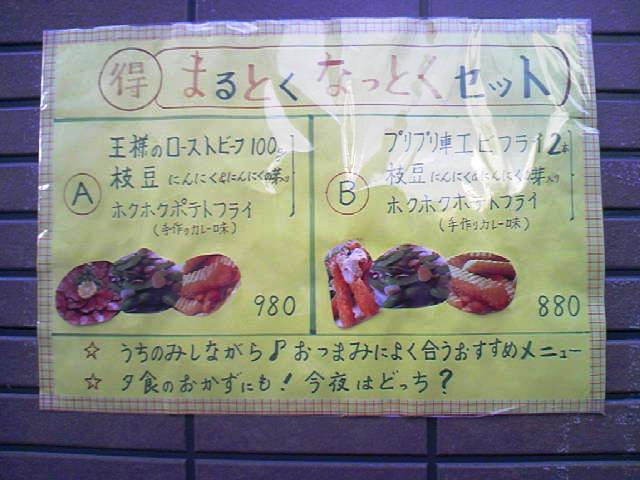 得 まるとく なっとくセット
A
王様のローストビーフ 100g
枝豆 にんにく&にんにくの芽入り
ホクホクポテトフライ
(手作りカレー味)
980
B
プリプリ車エビフライ 2本
枝豆 にんにく&にんにくの芽入り
ホクホクポテトフライ
(手作りカレー味)
880
☆ うちのみしながら♪おつまみによく合うおすすめメニュー
☆ 夕食のおかずにも! 今夜はどっち?